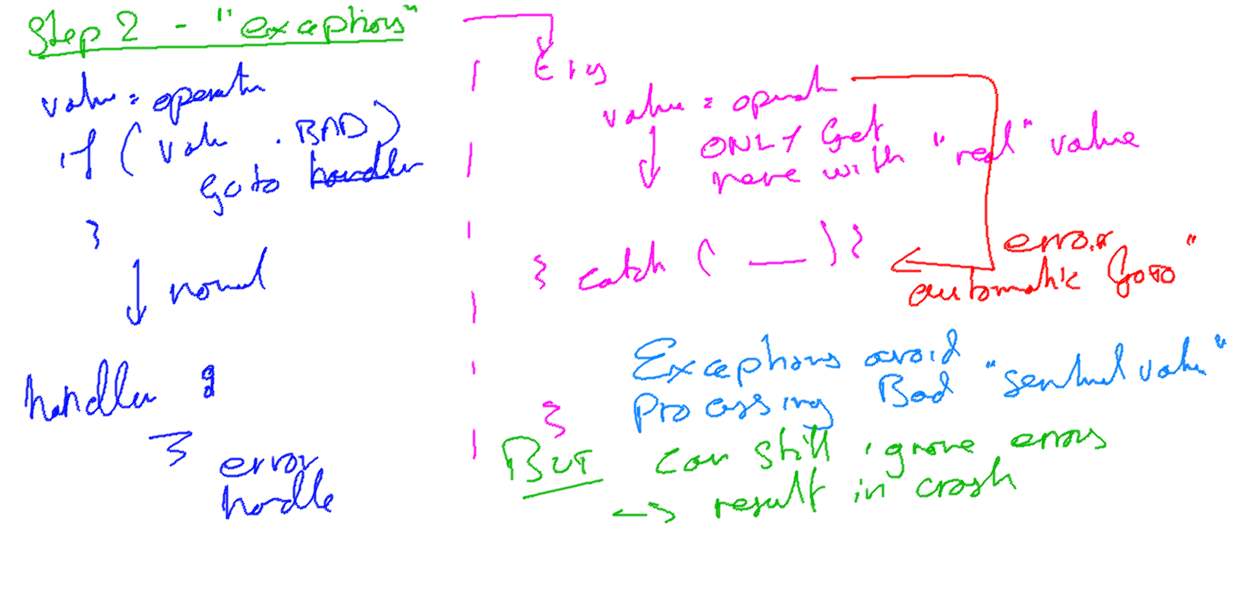 Step 2 - "exceptions"
value = operate
if ( value . BAD)
goto handler
}
↓ normal
handler :
error
handle
try
value = operate
↓ ONLY Get
here with "real" value
} catch ( __ ) {
error
automatic "GOTO"
}
Exceptions avoid
Processing Bad "sentinel value"
BUT can still ignore errors
→ result in crash